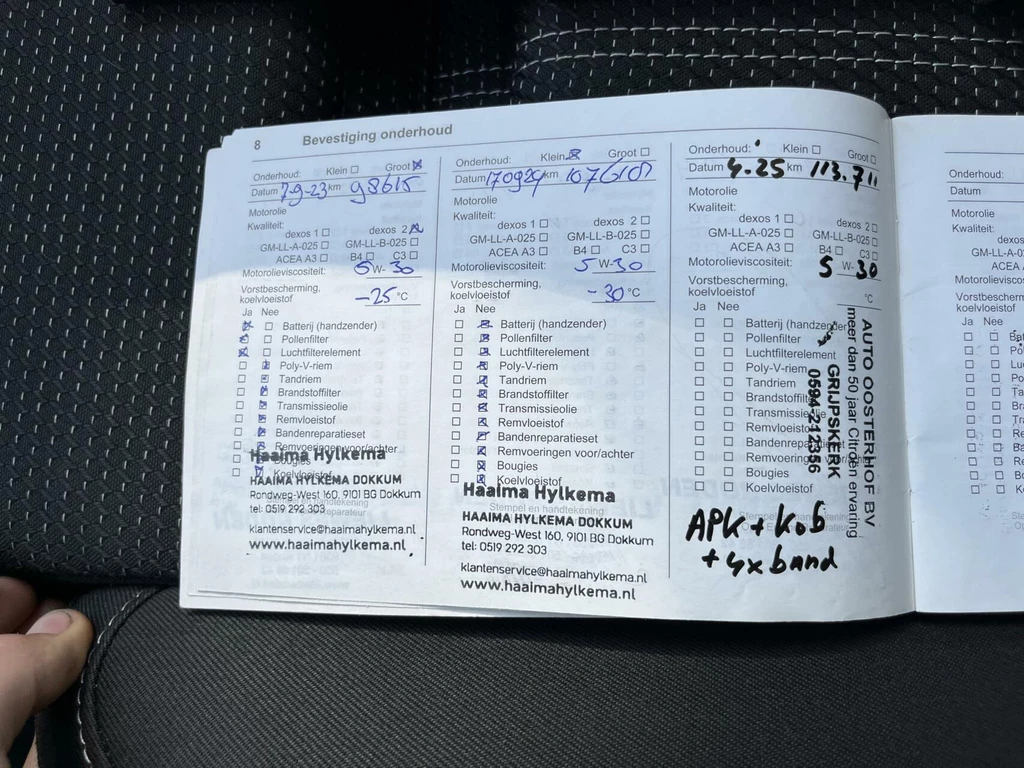 8 Bevestiging onderhoud
Onderhoud: Klein Groot
Datum 7-9-23 km 98615
Motorolie
Kwaliteit:
dexos 1 dexos 2
GM-LL-A-025 GM-LL-B-025
ACEA A3 B4 C3
Motorolieviscositeit: 5 W- 30
Vorstbescherming,
koelvloeistof -25 °C
Ja Nee
Batterij (handzender)
Pollenfilter
Luchtfilterelement
Poly-V-riem
Tandriem
Brandstoffilter
Transmissieolie
Remvloeistof
Bandenreparatieset
Remvoeringen voor/achter
Bougies
Koelvloeistof
Haaima Hylkema
HAAIMA HYLKEMA DOKKUM
Rondweg-West 160, 9101 BG Dokkum
tel: 0519 292 303
klantenservice@haaimahylkema.nl
www.haaimahylkema.nl
Onderhoud: Klein Groot
Datum 170924 km 107610
Motorolie
Kwaliteit:
dexos 1 dexos 2
GM-LL-A-025 GM-LL-B-025
ACEA A3 B4 C3
Motorolieviscositeit: 5 W-30
Vorstbescherming,
koelvloeistof -30 °C
Ja Nee
Batterij (handzender)
Pollenfilter
Luchtfilterelement
Poly-V-riem
Tandriem
Brandstoffilter
Transmissieolie
Remvloeistof
Bandenreparatieset
Remvoeringen voor/achter
Bougies
Koelvloeistof
Haaima Hylkema
Stempel en handtekening
HAAIMA HYLKEMA DOKKUM
Rondweg-West 160, 9101 BG Dokkum
tel: 0519 292 303
klantenservice@haaimahylkema.nl
www.haaimahylkema.nl
Onderhoud: Klein Groot
Datum 4.25 km 113.711
Motorolie
Kwaliteit:
dexos 1 dexos 2
GM-LL-A-025 GM-LL-B-025
ACEA A3 B4 C3
Motorolieviscositeit: 5 W-30
Vorstbescherming,
koelvloeistof °C
Ja Nee
Batterij (handzender)
Pollenfilter
Luchtfilterelement
Poly-V-riem
Tandriem
Brandstoffilter
Transmissieolie
Remvloeistof
Bandenreparatieset
Remvoeringen voor/achter
Bougies
Koelvloeistof
AUTO OOSTERHOF BV
meer dan 50 jaar Citroën ervaring
GRIJPSKERK
0594-212356
APK + kob
+ 4x band
Onderhoud:
Datum
Motorolie
Kwaliteit:
dexos
GM-LL-A-0
ACEA
Motorolieviscos
Vorstbescherm
koelvloeistof
Ja Nee